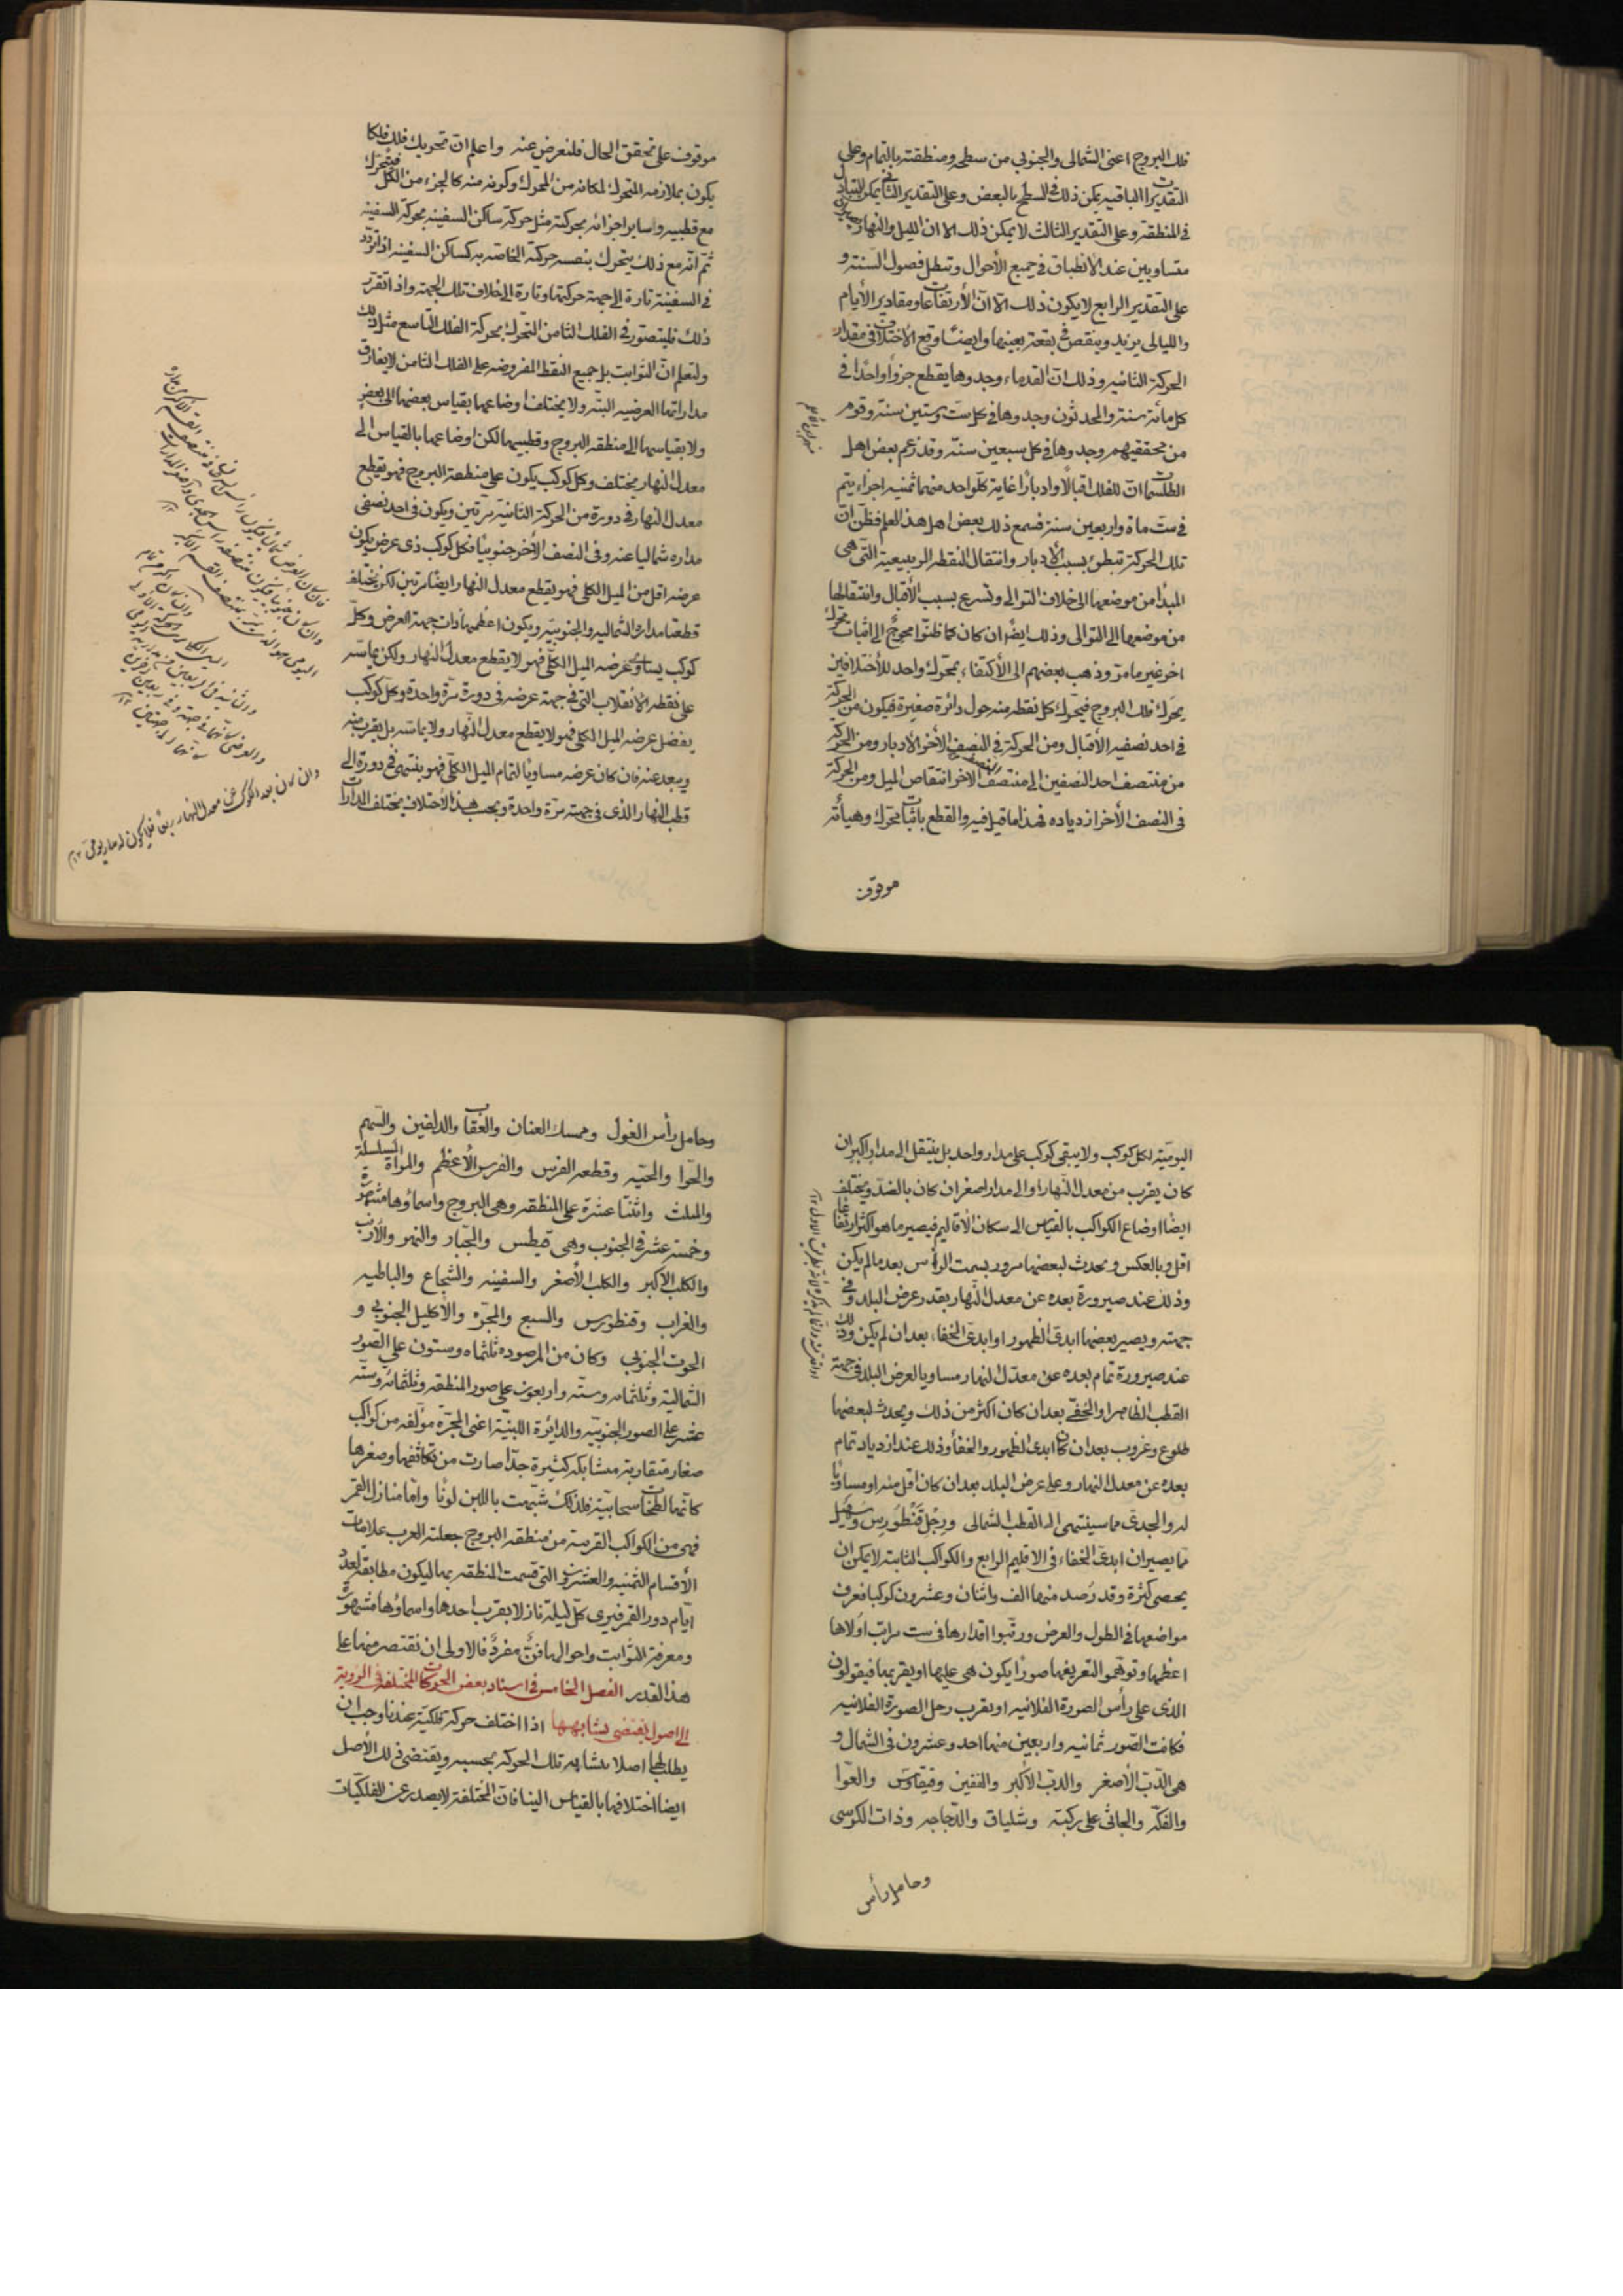 فلك البروج اعنى الشمالى والجنوبى من سطحه ومنطقته بالتمام وعلى
التقديرات الباقيه يمكن ذلك فى السطح بالبعض وعلى التقدير الثانى يمكن التبادل
فى المنطقة وعلى التقدير الثالث لا يمكن ذلك الا ان الليل والنهار
متساويين عند الانطباق فى جميع الأحوال وتبطل فصول السنة و
على التقدير الرابع لا يكون ذلك الا انّ الأرتفاعات ومقادير الأيام
والليالى يزيد وينقص فى بقعة بعينها وايضًا وقع الاختلاف فى مقدار
الحركة الثانيه وذلك انّ القدماء وجدوها يقطع جزوًا واحدًا فى
كل مائة سنة والمحدثون وجدوها فى كل ستّ وستين سنة وقوم
من محققيهم وجدوها فى كل سبعين سنة وقد زعم بعض اهل
الطلسمات انّ للفلك اقبالًا وادبارًا غاية كلّ واحد منهما ثمنيه اجزاء يتم
فى ست ماة واربعين سنة فسمع ذلك بعض اهل هذ العلم فظنّ انّ
تلك الحركة تبطئ بسبب الأدبار وانتقال النقطه الربيعية التى هى
المبدأ من موضعها الى خلاف التوالى وتسرع بسبب الأقبال وانتقالها
من موضعها الى التوالى وذلك ايضًا ان كان كما ظنّوا محوجٌ الى اثبات محرك
اخر غير ما مرّ وذهب بعضهم الى الأكتفاء بمحرك واحد للأختلافين
يحرك فلك البروج فيتحرك كل نقطه منه حول دائرة صغيرة فيكون من الحركة
فى احد نصفيه الأقبال ومن الحركة فى النصف الأخر الأدبار ومن الحركة
من منتصف احد النصفين الى منتصف الاخر انتقاص الميل ومن الحركة
فى النصف الأخر ازدياده فهذا ما قيل فيه والقطع باثبات محرك وهيأته
موقوف
موقوف على تحقق الحال فلنعرض عنه واعلم انّ تحريك فلك فلكا
يكون بملازمة المتحرك لمكانه من المحرّك وكونه منه كالجزء من الكل فيتحرك
مع قطبيه وساير اجزائه بحركته مثل حركة ساكن السفينه بحركة السفينه
ثمّ انّه مع ذلك يتحرك بنفسه حركته الخاصّه به كساكن السفينه اذا تردّد
فى السفينة تارة الى جهة حركتها وتارة الى خلاف تلك الجهة واذ اتقرّر
ذلك فليتصوّر فى الفلك الثامن المتحرّك بحركة الفلك التاسع مثل ذلك
ولتعلم انّ الثوابت بل جميع النقط المفروضه على الفلك الثامن لا يفارق
مداراتها العرضيه البتّه ولا يختلف اوضاعها بقياس بعضها الى بعض
ولا بقياسها الى منطقه البروج وقطبيها لكن اوضاعها بالقياس الى
معدل النهار يختلف وكل كوكب يكون على منطقة البروج فهو يقطع
معدل النهار فى دورة من الحركة الثانية مرّتين ويكون فى احد نصفى
مداره شماليا عنه وفى النصف الأخر جنوبيًا فكل كوكب ذى عرض يكون
عرضه اقل من الميل الكلى فهو يقطع معدل النهار ايضًا مرّتين لكن يختلف
قطعتا مداره الشماليه والجنوبيّه ويكون اعظمهما ذات جهة العرض وكلّ
كوكب يساوى عرضه الميل الكلّى فهو لا يقطع معدل النهار ولكن يماسّه
على نقطه الانقلاب التى فى جهة عرضه فى دورة مرّة واحدة وكلّ كوكب
يفضل عرضه الميل الكلى فهو لا يقطع معدل النّهار ولا يماسّه بل يقرب منه
ويبعد عنه فان كان عرضه مساويًا لتمام الميل الكلّى فهو ينتهى فى دورة الى
قطب النهار الذى فى جهته مرّة واحدة ويجب هذ الأختلاف يختلف المدارات
وان كان بعد الكوكب عن معدل النهار ربعا فلا يكون له مدار يومى ١٢
اليوميّه لكل كوكب ولا يبقى كوكب على مدار واحد بل ينتقل الى مدار اكبر ان
كان يقرب من معدل النهار او الى مدار اصغر ان كان بالضدّ ويختلف
ايضًا اوضاع الكواكب بالقياس الى سكان الأقاليم فيصير ما هو اكثر ارتفاعا
اقل وبالعكس ويحدث لبعضها مرور بسمت الرأس بعد ما لم يكن
وذلك عند صيرورة بعده عن معدل النّهار بقدر عرض البلد وفى
جهته ويصير بعضها ابدىّ الظهور او ابدىّ الخفاء بعد ان لم يكن وذلك
عند صيرورة تمام بعده عن معدّل النهار مساويا لعرض البلد فى جهة
القطب الظاهر او الخفى بعد ان كان اكثر من ذلك ويحدث لبعضها
طلوع وغروب بعد ان كان ابدى الظهور والخفاء وذلك عند ازدياد تمام
بعده عن معدل النهار وعلى عرض البلد بعد ان كان اقل منه او مساويًا
له والجدى مما سينتهى الى القطب الشمالى ورِجْل قَنْطَورِس وسُهَيل
ممّا يصيران ابدىّ الخفاء فى الاقليم الرابع والكواكب الثابتة لا يمكن ان
يحصى كثرة وقد رُصد منها الف واثنان وعشرون كوكبا فعرف
مواضعها فى الطول والعرض ورتّبوا اقدارها فى ست مراتب اولاها
اعظمها وتوهّموا لتعريفها صورًا يكون هى عليها او بقربها فيقولون
الذى على رأس الصورة الفلانيه او بقرب رجل الصورة الفلانيه
فكانت الصّور ثمانيه واربعين منها احد وعشرون فى الشمال و
هى الدّبّ الأصغر والدبّ الأكبر والتنين وقيقاوس والعوّا
والفكّه والجاثى على ركبته وشلياق والدّجاجه وذات الكرسى
وحامل رأس
وحامل رأس الغول وممسك العنان والعقاب والدلفين والسّهم
والحوّا والحيّه وقطعه الفرس والفرس الأعظم والمرأة السلسلة
والمثلث واثنتا عشرة على المنطقه وهى البروج واسماؤها مشهورة
وخمسة عشر فى الجنوب وهى قيطس والجبّار والنهر والأرنب
والكلب الاكبر والكلب الأصغر والسفينه والشجاع والباطيه
والغراب وقنطورس والسبع والمجمره والاكليل الجنوبى و
الحوت الجنوبى وكان من المرصوده ثلثماه وستون على الصّور
الشماليّة وثلثماه وستّه واربعون على صور المنطقه وثلثمائة وستّه
عشر على الصور الجنوبيّه والدايرة اللبنيّة اعنى المجرّة مؤلّفه من كواكب
صغار متقاربة متشابكه كثيرة جدًّا صارت من تكاثفها وصغرها
كانّها لطخات سحابيّة فلذلك شبّهت باللبن لونًا وامّا منازل القمر
فهى من الكواكب القريبة من منطقه البروج جعلته العرب علامات
الأقسام الثمنيه والعشرين التى قسمت المنطقه بها ليكون مطابقة لعدد
ايّام دور القمر فيرى كلّ ليلة نازلا بقرب احدها واسماؤها مشهورة
ومعرفة الثوابت واحوالها فنٌّ مفردٌ فالاولى ان نقتصر منها على
هذ القدر الفصل الخامس فى اسناد بعض الحركات المختلفة فى الروية
الى اصول يقتضى تشابهها اذا اختلف حركة فلكيّة عندنا وجب ان
يطلب لها اصلا يتشابه تلك الحركه بحسبه ويقتضى ذلك الأصل
ايضا اختلافها بالقياس الينا فانّ المختلفة لا يصدر عن الفلكيّات